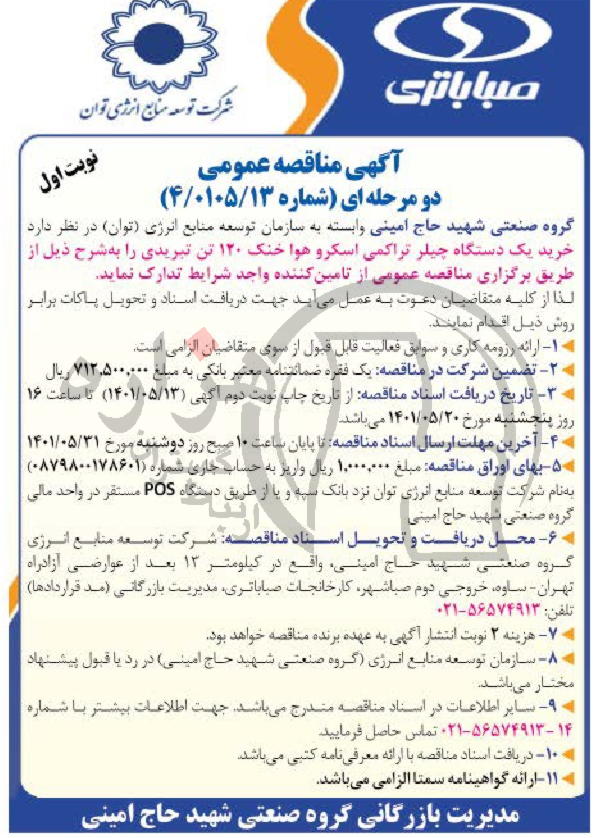 صباباتری
شرکت توسعه منابع انرژی توان
نوبت اول
آگهی مناقصه عمومی
دو مرحله ای (شماره ۴/۰۱۰۵/۱۳)
گروه صنعتی شهید حاج امینی وابسته به سازمان توسعه منابع انرژی (توان) در نظر دارد
خرید یک دستگاه چیلر تراکمی اسکرو هوا خنک ۱۲۰ تن تبریدی را به‌شرح ذیل از
طریق برگزاری مناقصه عمومی از تامین‌کننده واجد شرایط تدارک نماید.
لذا از کلیه متقاضیان دعوت به عمل می‌آید جهت دریافت اسناد و تحویل پاکات برابر
روش ذیل اقدام نمایند.
۱- ارائه رزومه کاری و سوابق فعالیت قابل قبول از سوی متقاضیان الزامی است.
۲- تضمین شرکت در مناقصه: یک فقره ضمانتنامه معتبر بانکی به مبلغ ۷۱۲,۵۰۰,۰۰۰ ریال
۳- تاریخ دریافت اسناد مناقصه: از تاریخ چاپ نوبت دوم آگهی (۱۴۰۱/۰۵/۱۳) تا ساعت ۱۶
روز پنجشنبه مورخ ۱۴۰۱/۰۵/۲۰ می‌باشد.
۴- آخرین مهلت ارسال اسناد مناقصه: تا پایان ساعت ۱۰ صبح روز دوشنبه مورخ ۱۴۰۱/۰۵/۳۱
۵-بهای اوراق مناقصه: مبلغ ۱,۰۰۰,۰۰۰ ریال واریز به حساب جاری شماره (۰۸۷۹۸۰۰۱۷۸۶۰۱)
به‌نام شرکت توسعه منابع انرژی توان نزد بانک سپه و یا از طریق دستگاه POS مستقر در واحد مالی
گروه صنعتی شهید حاج امینی
۶- محل دریافت و تحویل اسناد مناقصه: شرکت توسعه منابع انرژی
گروه صنعتی شهید حاج امینی، واقع در کیلومتر ۱۳ بعد از عوارضی آزادراه
تهران- ساوه، خروجی دوم صباشهر، کارخانجات صباباتری، مدیریت بازرگانی (مد قراردادها)
تلفن: ۵۶۵۷۴۹۱۳-۰۲۱
۷- هزینه ۲ نوبت انتشار آگهی به عهده برنده مناقصه خواهد بود.
۸- سازمان توسعه منابع انرژی (گروه صنعتی شهید حاج امینی) در رد یا قبول پیشنهاد
مختار می‌باشد.
۹- سایر اطلاعات در اسناد مناقصه مندرج می‌باشد. جهت اطلاعات بیشتر با شماره
۱۴ -۵۶۵۷۴۹۱۳-۰۲۱ تماس حاصل فرمایید.
۱۰- دریافت اسناد مناقصه با ارائه معرفی‌نامه کتبی می‌باشد.
۱۱-ارائه گواهینامه سمتا الزامی می‌باشد.
مدیریت بازرگانی گروه صنعتی شهید حاج امینی